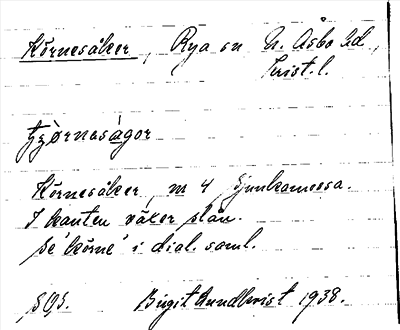 Körnesåker, Rya sn N. Åsbo hd,
Krist. l.
Körnesåker, n 4 Sjunkamossa.
I kanten växer slån.
Se 'körne' i dial. saml.
Birgit Lundkvist 1938.